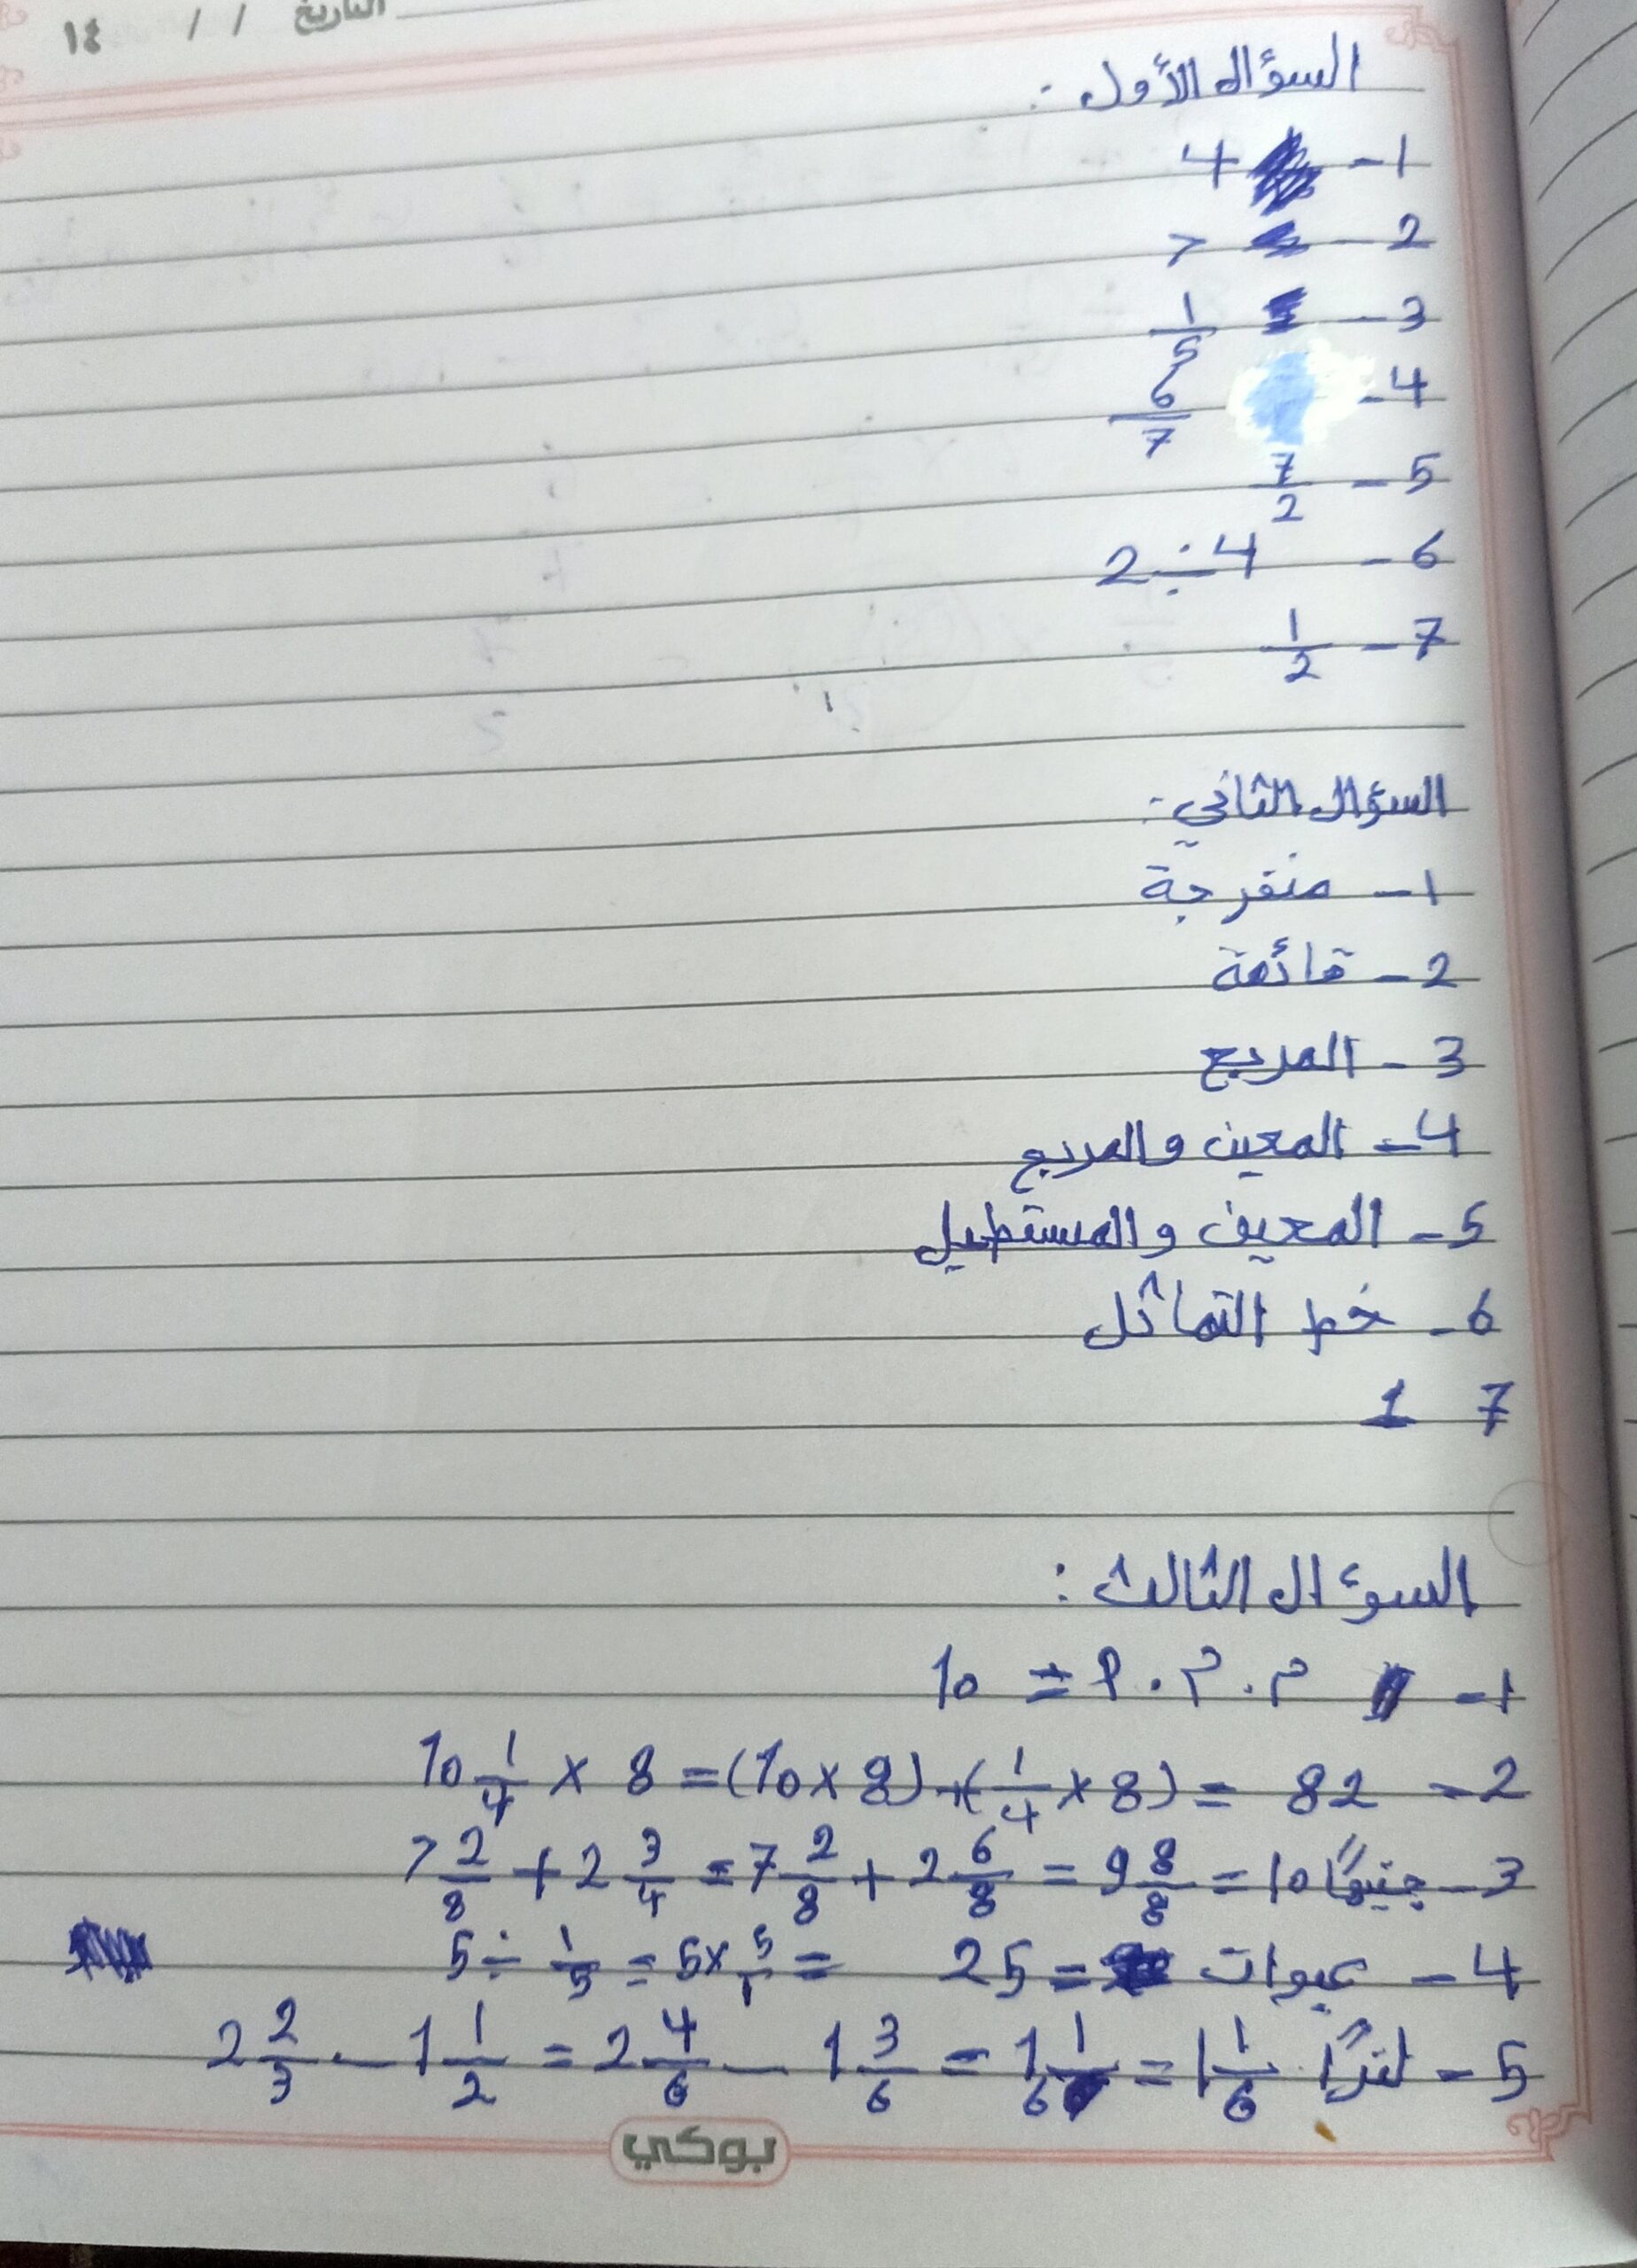 التاريخ / / ١٤
السؤال الأول :-
1- 4
2- >
3- 1/5
4- 6/7
5- 7/2
6- 2 ÷ 4
7- 1/2
السؤال الثاني :-
1- منفرجة
2- قائمة
3- المربع
4- المعين والمربع
5- المعين والمستطيل
6- خط التماثل
7 1
السؤال الثالث :
1- م . م . أ = 10
2- 10 1/4 × 8 = (10 × 8) + (1/4 × 8) = 82
3- 7 2/8 + 2 3/4 = 7 2/8 + 2 6/8 = 9 8/8 = 10 جنيهًا
4- 5 ÷ 1/5 = 5 × 5/1 = 25 = عبوات
5- 2 2/3 - 1 1/2 = 2 4/6 - 1 3/6 = 1 1/6 = 1 1/6 لترًا
بوكي